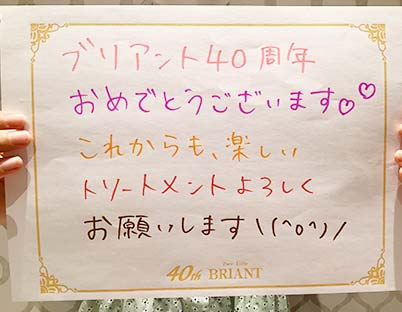 ブリアント40周年
おめでとうございます♡♡
これからも、楽しい
トリートメントよろしく
お願いします\(^o^)/
40th BRIANT